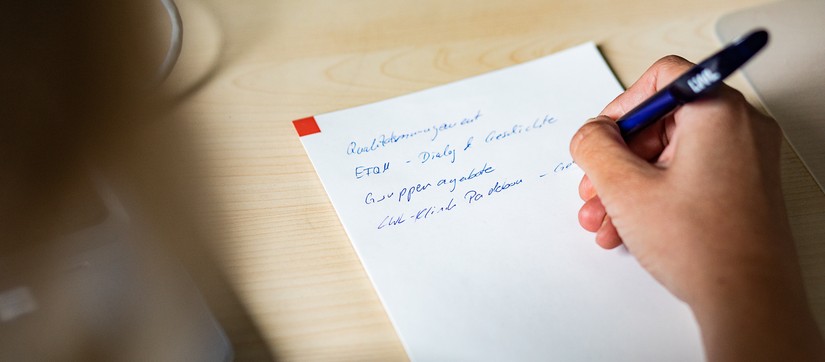 Qualitätsmanagement
ETQM - Dialog & Geschichte
Gruppenangebote
LWL-Klinik Paderborn -
LWL